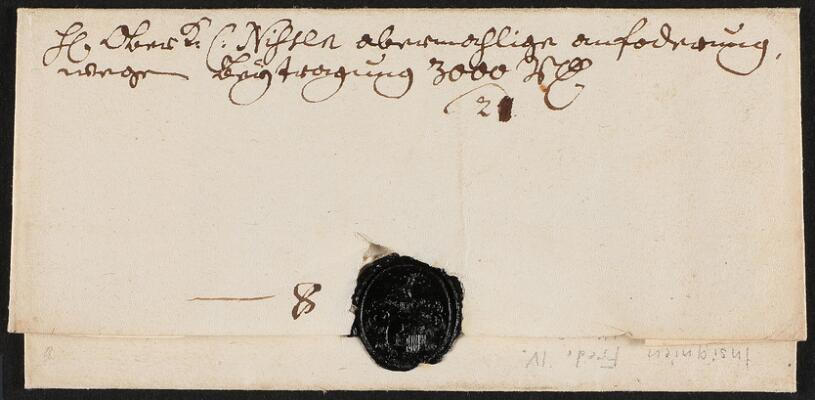 H. Ober K. C: Nihsle abermahlige anfoderung,
wegen Beÿtragung 3000 Rth
21
8
Insignien Fred. IV.